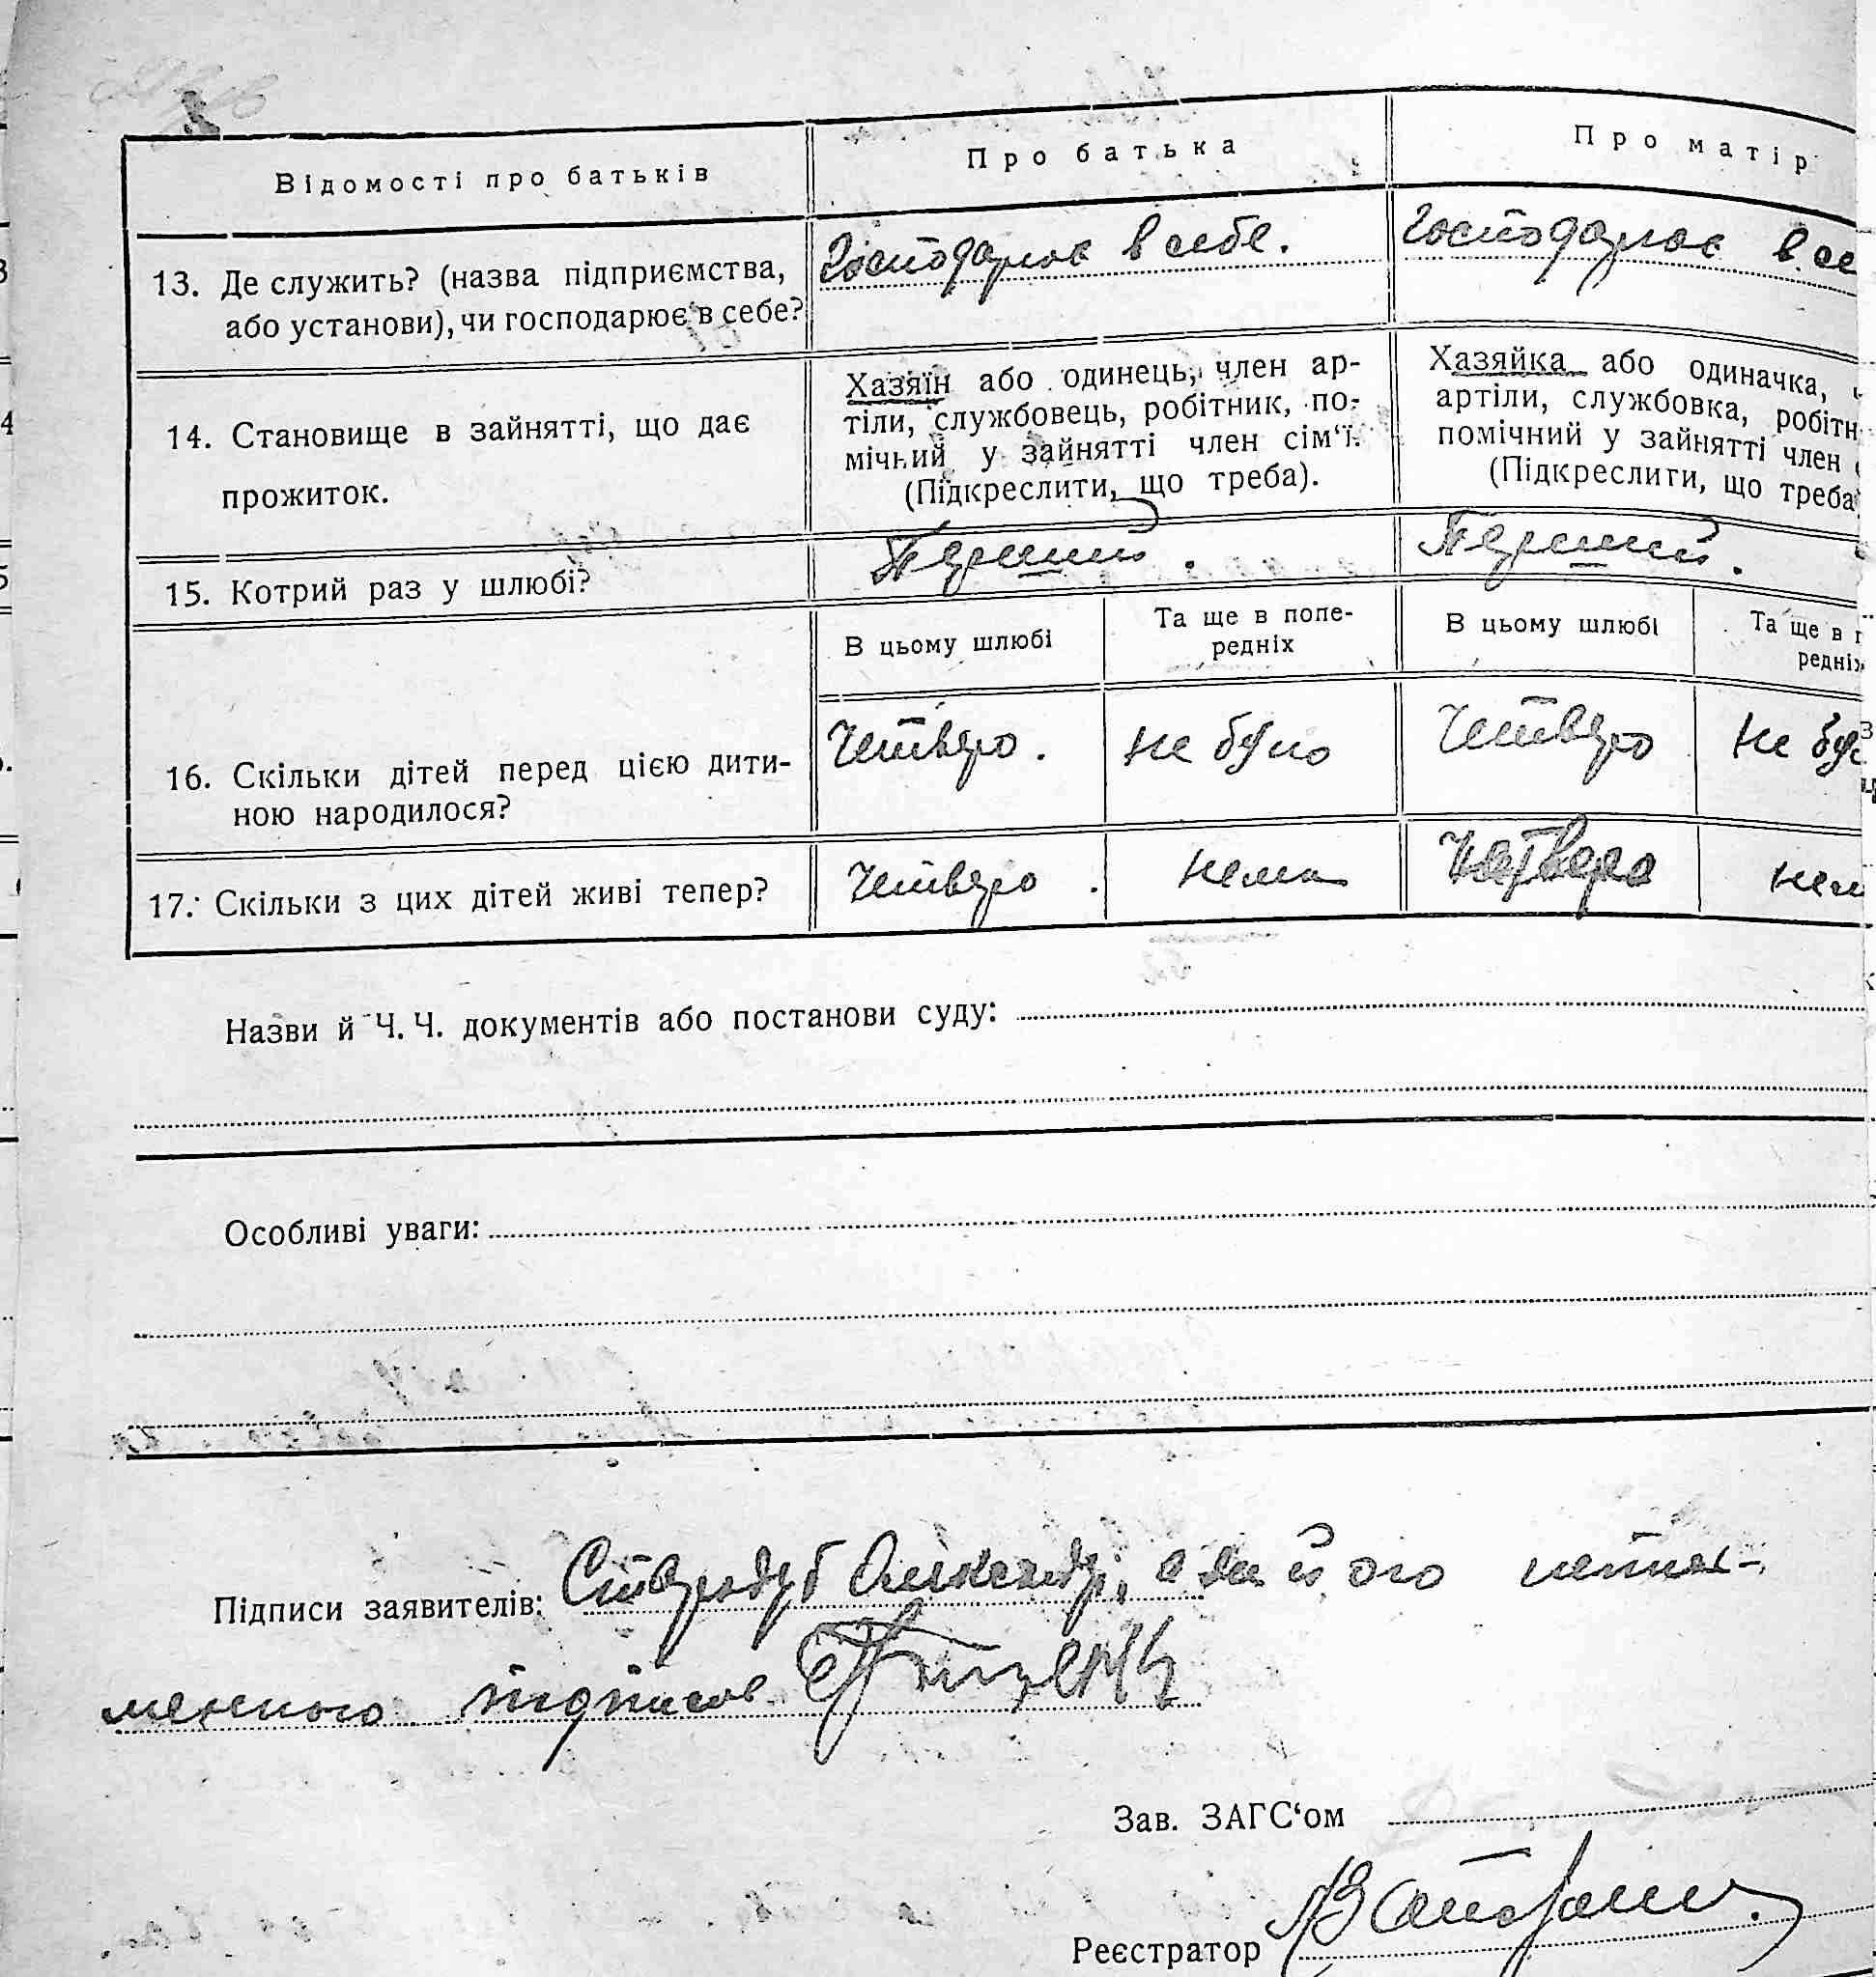 Відомості про батьків
Про батька
Про матір
13. Де служить? (назва підприємства,
або установи), чи господарює в себе?
Господарює в себе.
Господарює в се
14. Становище в зайнятті, що дає
прожиток.
Хазяїн або одинець, член ар-
тіли, службовець, робітник, по-
мічний у зайнятті член сім‘ї.
(Підкреслити, що треба).
Хазяйка або одиначка,
артіли, службовка, робітн
помічний у зайнятті член
(Підкреслити, що треба
15. Котрий раз у шлюбі?
Перший.
Перший.
В цьому шлюбі
Та ще в попе-
редніх
В цьому шлюбі
Та ще в п
редніх
16. Скільки дітей перед цією дити-
ною народилося?
Четверо.
не було
Четверо
не бу
17. Скільки з цих дітей живі тепер?
Четверо.
нема
Четверо
нем
Назви й Ч. Ч. документів або постанови суду:
Особливі уваги:
Підписи заявителів: Стародуб Олександр, а за його неписьо-
менного підписав
Зав. ЗАГС‘ом
Реєстратор